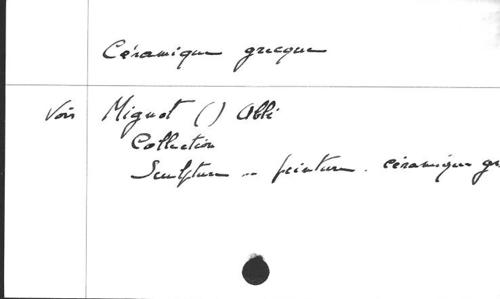 Céramique grecque
Voir Mignot () Abbé
Collection
Sculpture .. peinture. céramique gr